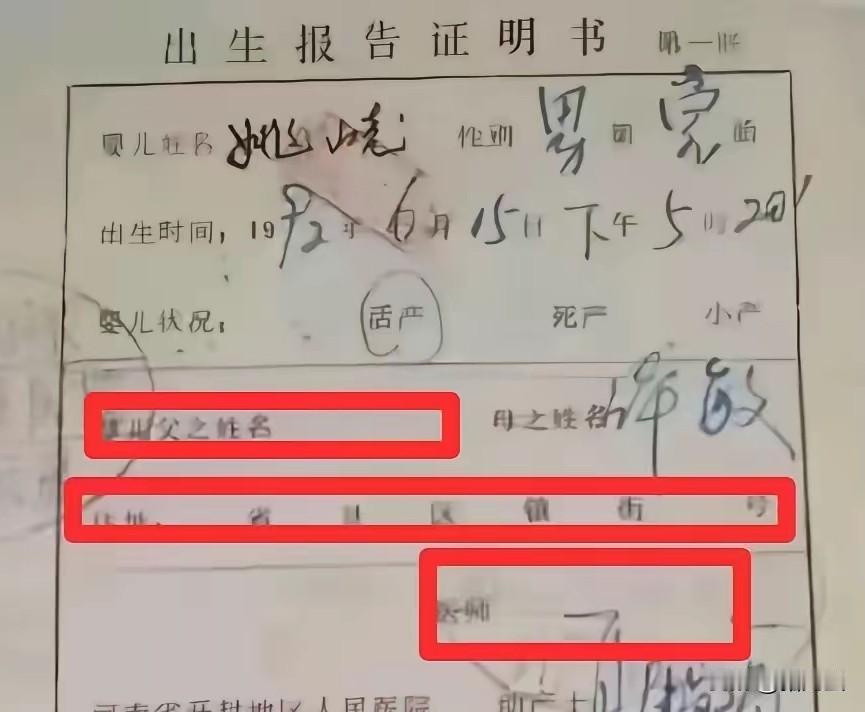 出生报告证明书 第一联
婴儿姓名 姚 性别 男 第 胎
出生时间：1992年6月15日下午5时20
婴儿状况： 活产 死产 小产
父之姓名 母之姓名 许敏
住址： 省 县 区 镇 街 号
医师
河南省开封地区人民医院 助产士